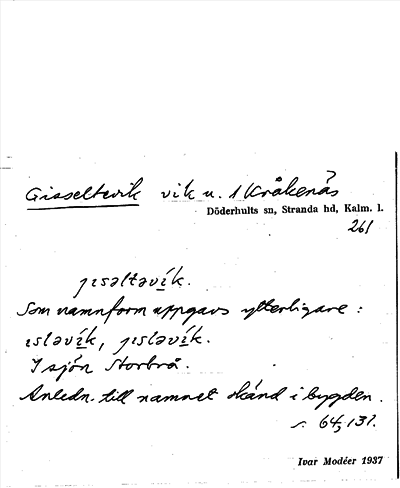 Gisseltevik vik u. 1 Kråkenäs
Döderhults sn, Stranda hd, Kalm. l.
261
jısəltəvík.
Som namnform uppgavs ytterligare:
ısləvík, jısləvík.
I sjön Storbrå.
Anledn. till namnet okänd i bygden.
s. 64, 131.
Ivar Modéer 1937